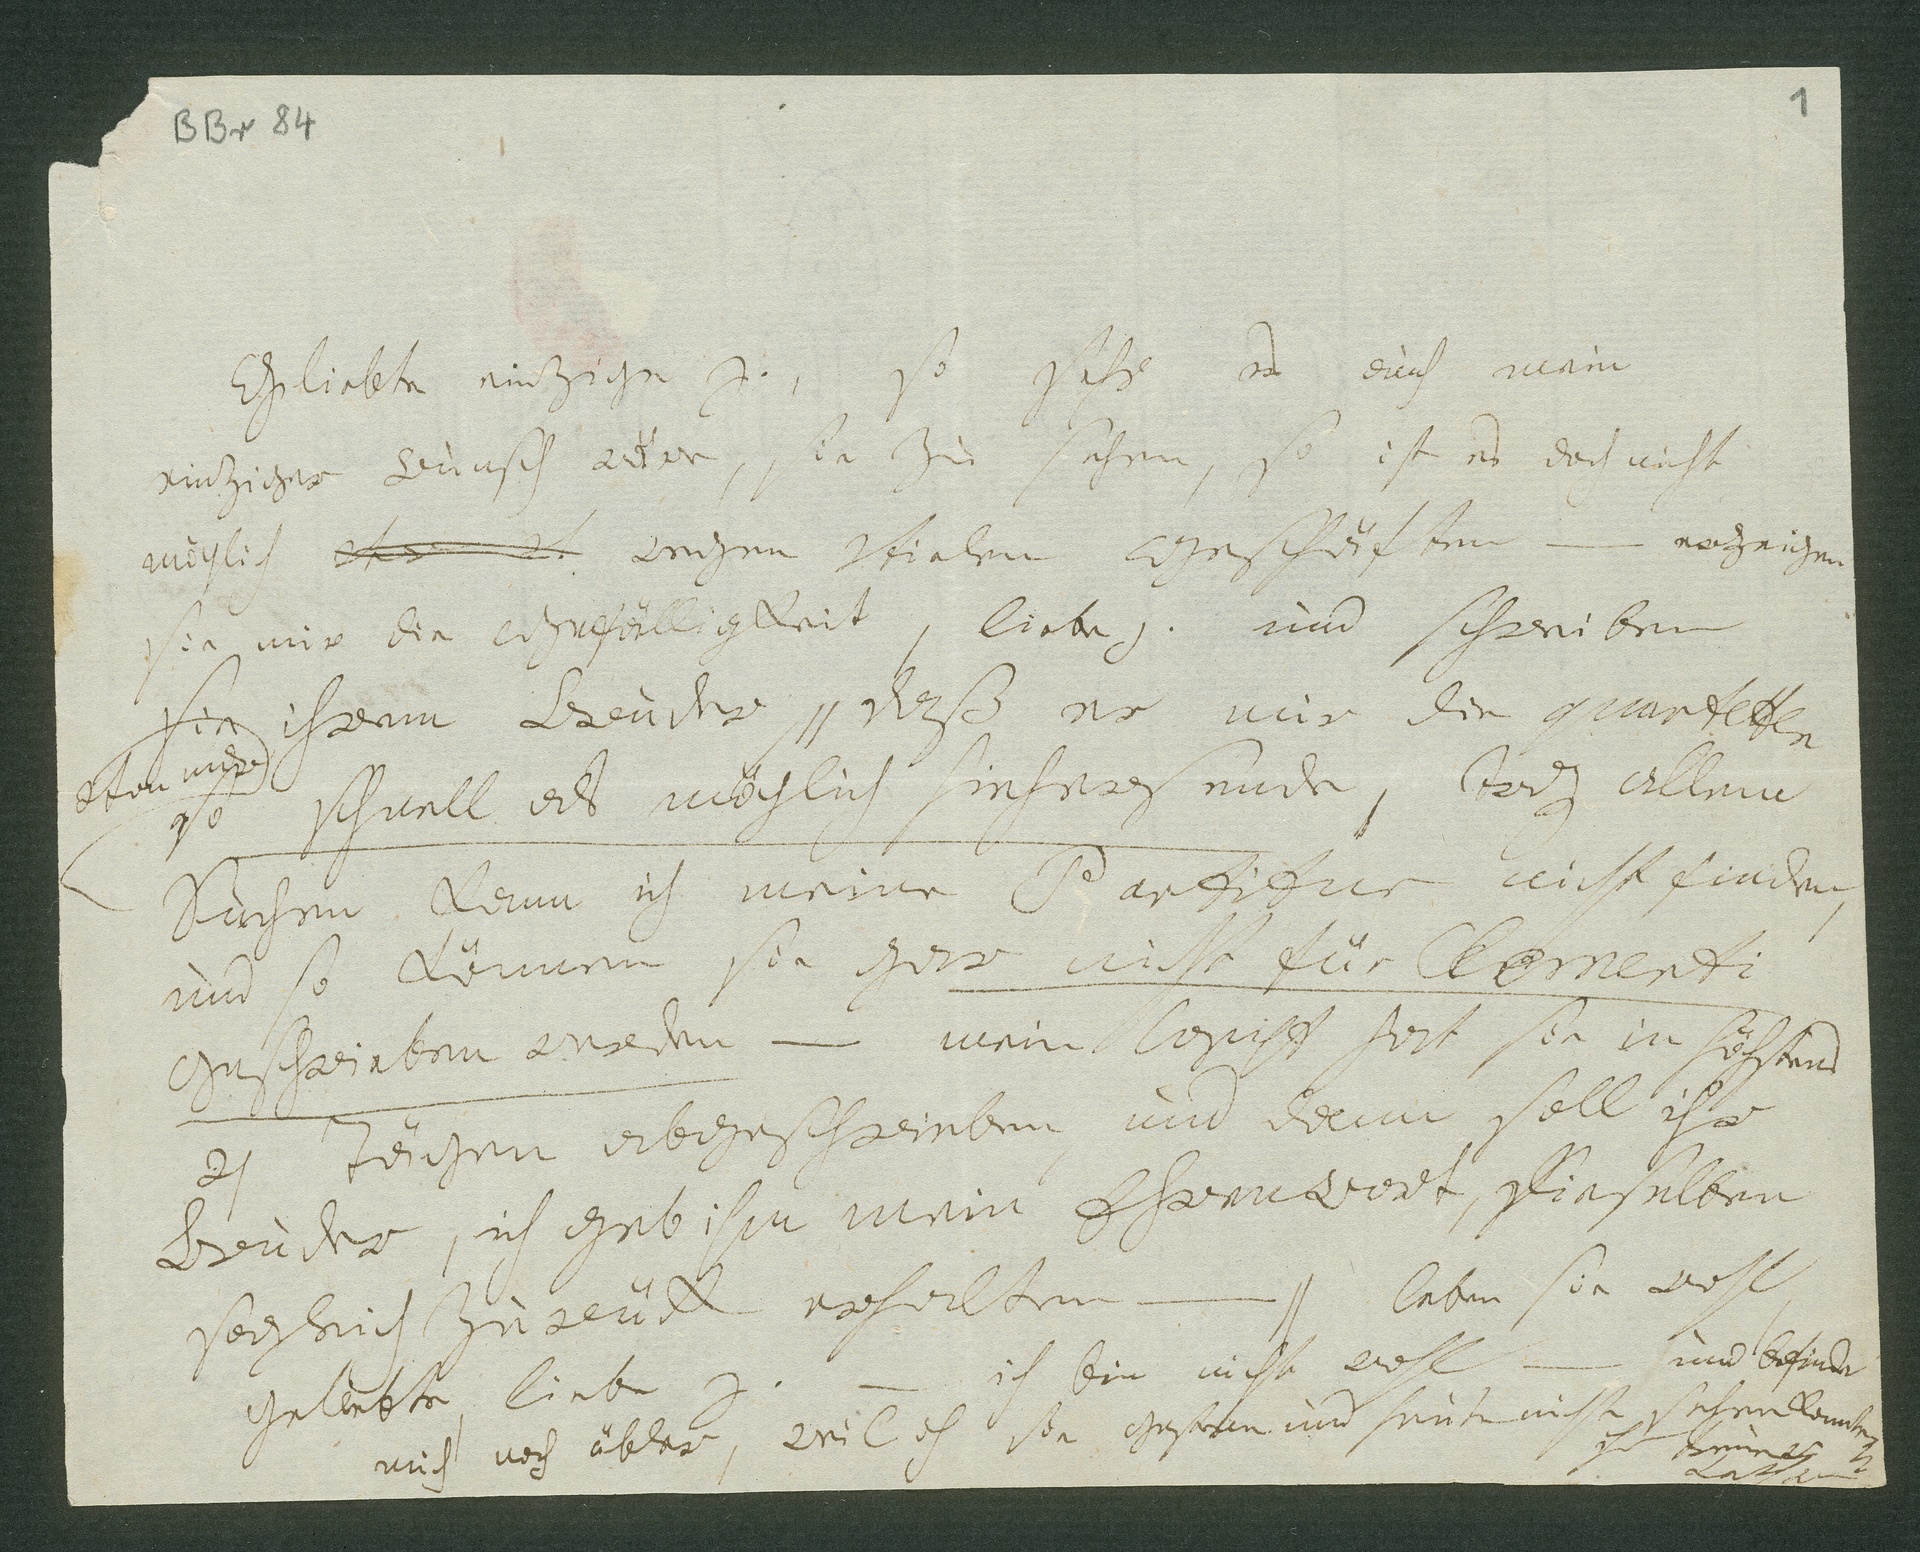 BBr 84
1
Geliebte einzige J., so sehr es auch mein
einziger wunsch wäre, sie zu sehen, so ist es doch nicht
möglich wegen vielen Geschäften — erzeigen
sie mir die Gefälligkeit, liebe J. und schreiben
sie ihrem Bruder, daß er mir die quartetten
von mir
so schnell als möglich hieherSende, troz allem
Suchen kann ich meine Partitur nicht finden,
und so können sie gar nicht für Clementi
geschrieben werden — mein Copist hat sie in höchstens
4 Tägen abgeschrieben, und dann soll ihr
Bruder, ich geb ihm mein Ehrenwort, dieselben
sogleich zurück erhalten — leben sie wohl,
geliebte, liebe J. — ich bin nicht wohl — und befinde
mich noch übler, weil ich sie gestern und heute nicht sehen konnte
ihr treuer